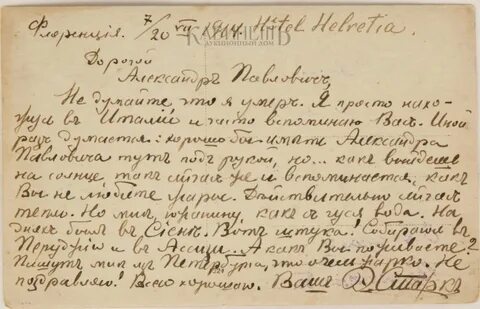 Флоренція. 7/20 VII 1914. Hôtel Helvetia.
КАБИНЕТЪ
АУКЦИОННЫЙ ДОМ
Дорогой
Александръ Павловичъ,
Не думайте, что я умеръ. Я просто нахо-
жусь въ Италіи и часто вспоминаю Васъ. Иной
разъ думается: хорошо бы имѣть Александра
Павловича тутъ подъ рукой, но... какъ выйдешь
на солнце такъ сейчасъ же и вспоминается, какъ
Вы не любите жары. Дѣйствительно сейчасъ
тепло. Но мнѣ, южанину, какъ съ гуся вода. На
дняхъ былъ въ Сіенѣ. Вотъ штука! Собираюсь въ
Перуджію и въ Ассизи. А какъ Вы поживаете?
Пишутъ мнѣ изъ Петербурга, что очень жарко. Не
поздравляю! Всего хорошаго. Вашъ Э. Старкъ